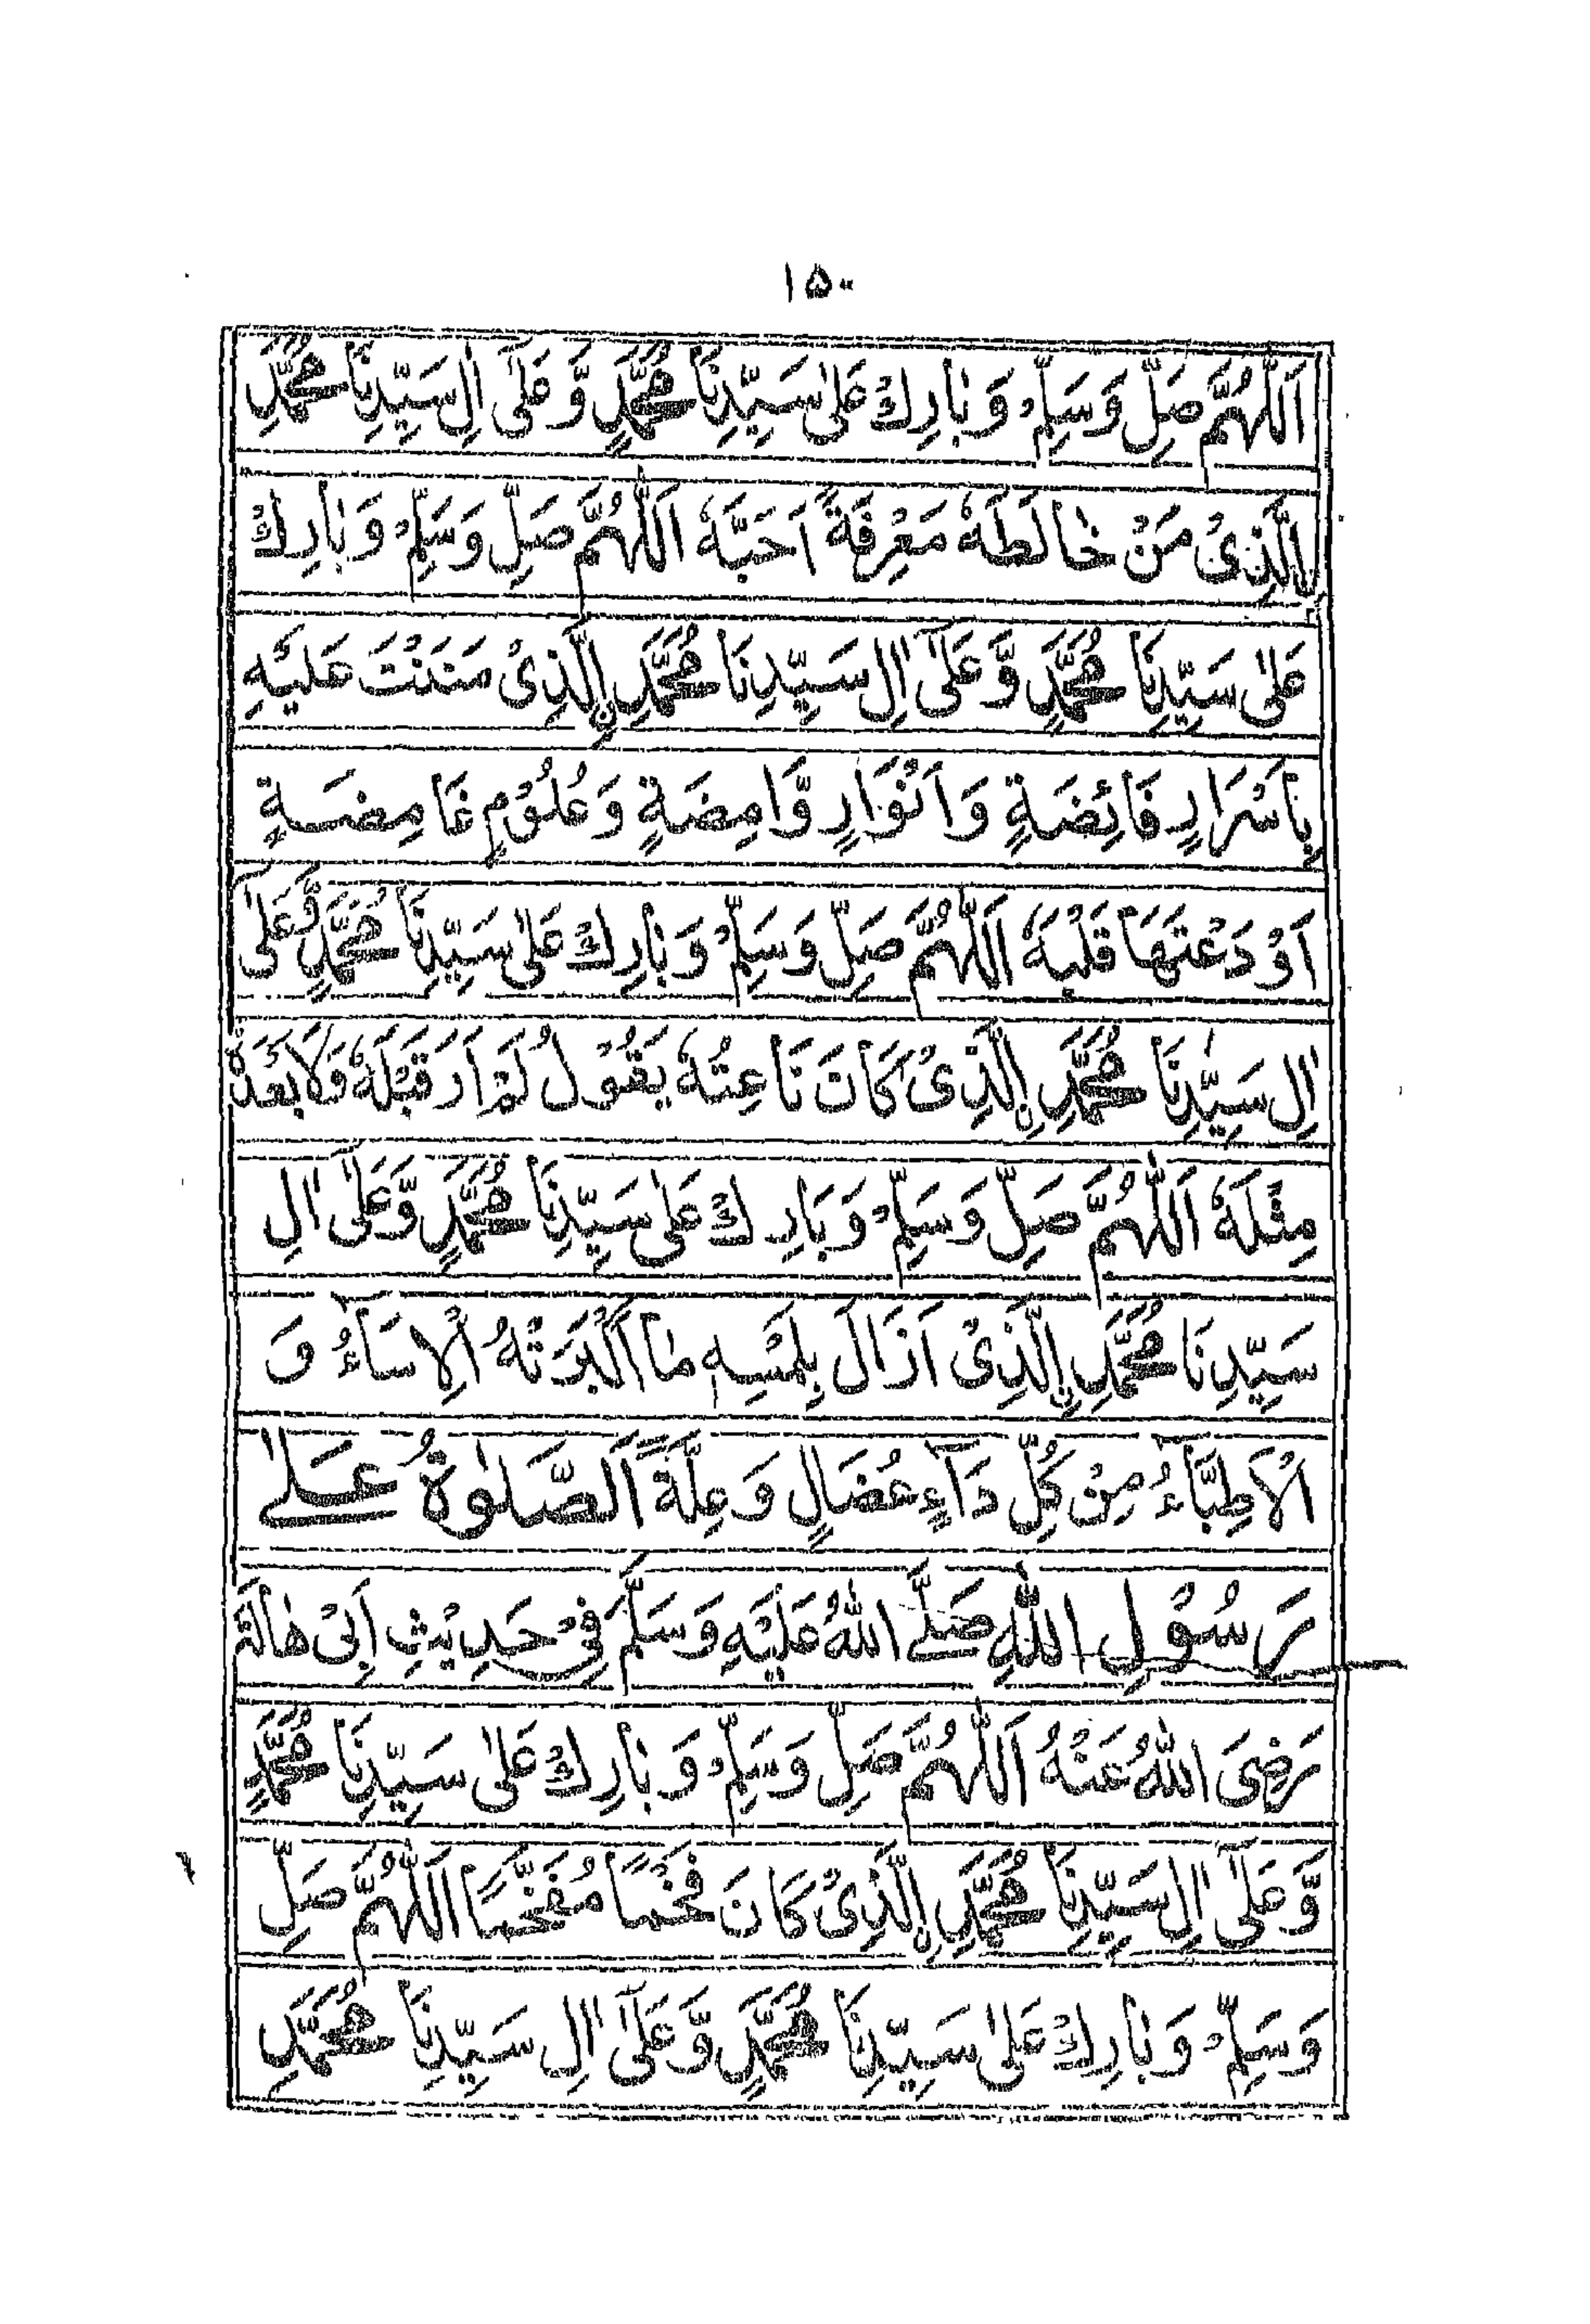 ۱۵۰
اَللّٰهُمَّ صَلِّ وَسَلِّمْ وَبَارِكْ عَلٰى سَيِّدِنَا مُحَمَّدٍ وَّعَلٰٓى اٰلِ سَيِّدِنَا مُحَمَّدِ
اِلَّذِىْ مَنْ خَالَطَهٗ مَعْرِفَةً اَحَبَّهٗ اَللّٰهُمَّ صَلِّ وَسَلِّمْ وَبَارِكْ
عَلٰى سَيِّدِنَا مُحَمَّدٍ وَّعَلٰٓى اٰلِ سَيِّدِنَا مُحَمَّدِ اِلَّذِىْ مَنَنْتَ عَلَيْهِ
بِاَسْرَارٍ فَائِضَةٍ وَاَنْوَارٍ وَّامِضَةٍ وَعُلُوْمٍ غَامِضَةٍ
اَوْدَعْتَهَا قَلْبَهٗ اَللّٰهُمَّ صَلِّ وَسَلِّمْ وَبَارِكْ عَلٰى سَيِّدِنَا مُحَمَّدٍ وَّعَلٰٓى
اٰلِ سَيِّدِنَا مُحَمَّدِ اِلَّذِىْ كَانَ نَاعِتُهٗ يَقُوْلُ لَمْ اَرَ قَبْلَهٗ وَلَا بَعْدَهٗ
مِثْلَهٗ اَللّٰهُمَّ صَلِّ وَسَلِّمْ وَبَارِكْ عَلٰى سَيِّدِنَا مُحَمَّدٍ وَّعَلٰٓى اٰلِ
سَيِّدِنَا مُحَمَّدِ اِلَّذِىْ اَزَالَ بِلَمْسِهٖ مَا اَكْبَرَتْهُ الْاِسَاءُ وَ
الْاَطِبَّآءُ مِنْ كُلِّ دَآءٍ عُضَالٍ وَعِلَّةً اَلصَّلٰوةُ عَلٰى
رَسُوْلِ اللّٰهِ صَلَّے اللّٰهُ عَلَيْهِ وَسَلَّمَ فِىْ حَدِيْثِ اَبِىْ هَالَةَ
رَضِىَ اللّٰهُ عَنْهُ اَللّٰهُمَّ صَلِّ وَسَلِّمْ وَبَارِكْ عَلٰى سَيِّدِنَا مُحَمَّدٍ
وَّعَلٰٓى اٰلِ سَيِّدِنَا مُحَمَّدِ اِلَّذِىْ كَانَ فَخْمًا مُفَخَّمًا اَللّٰهُمَّ صَلِّ
وَسَلِّمْ وَبَارِكْ عَلٰى سَيِّدِنَا مُحَمَّدٍ وَّعَلٰٓى اٰلِ سَيِّدِنَا مُحَمَّدِ